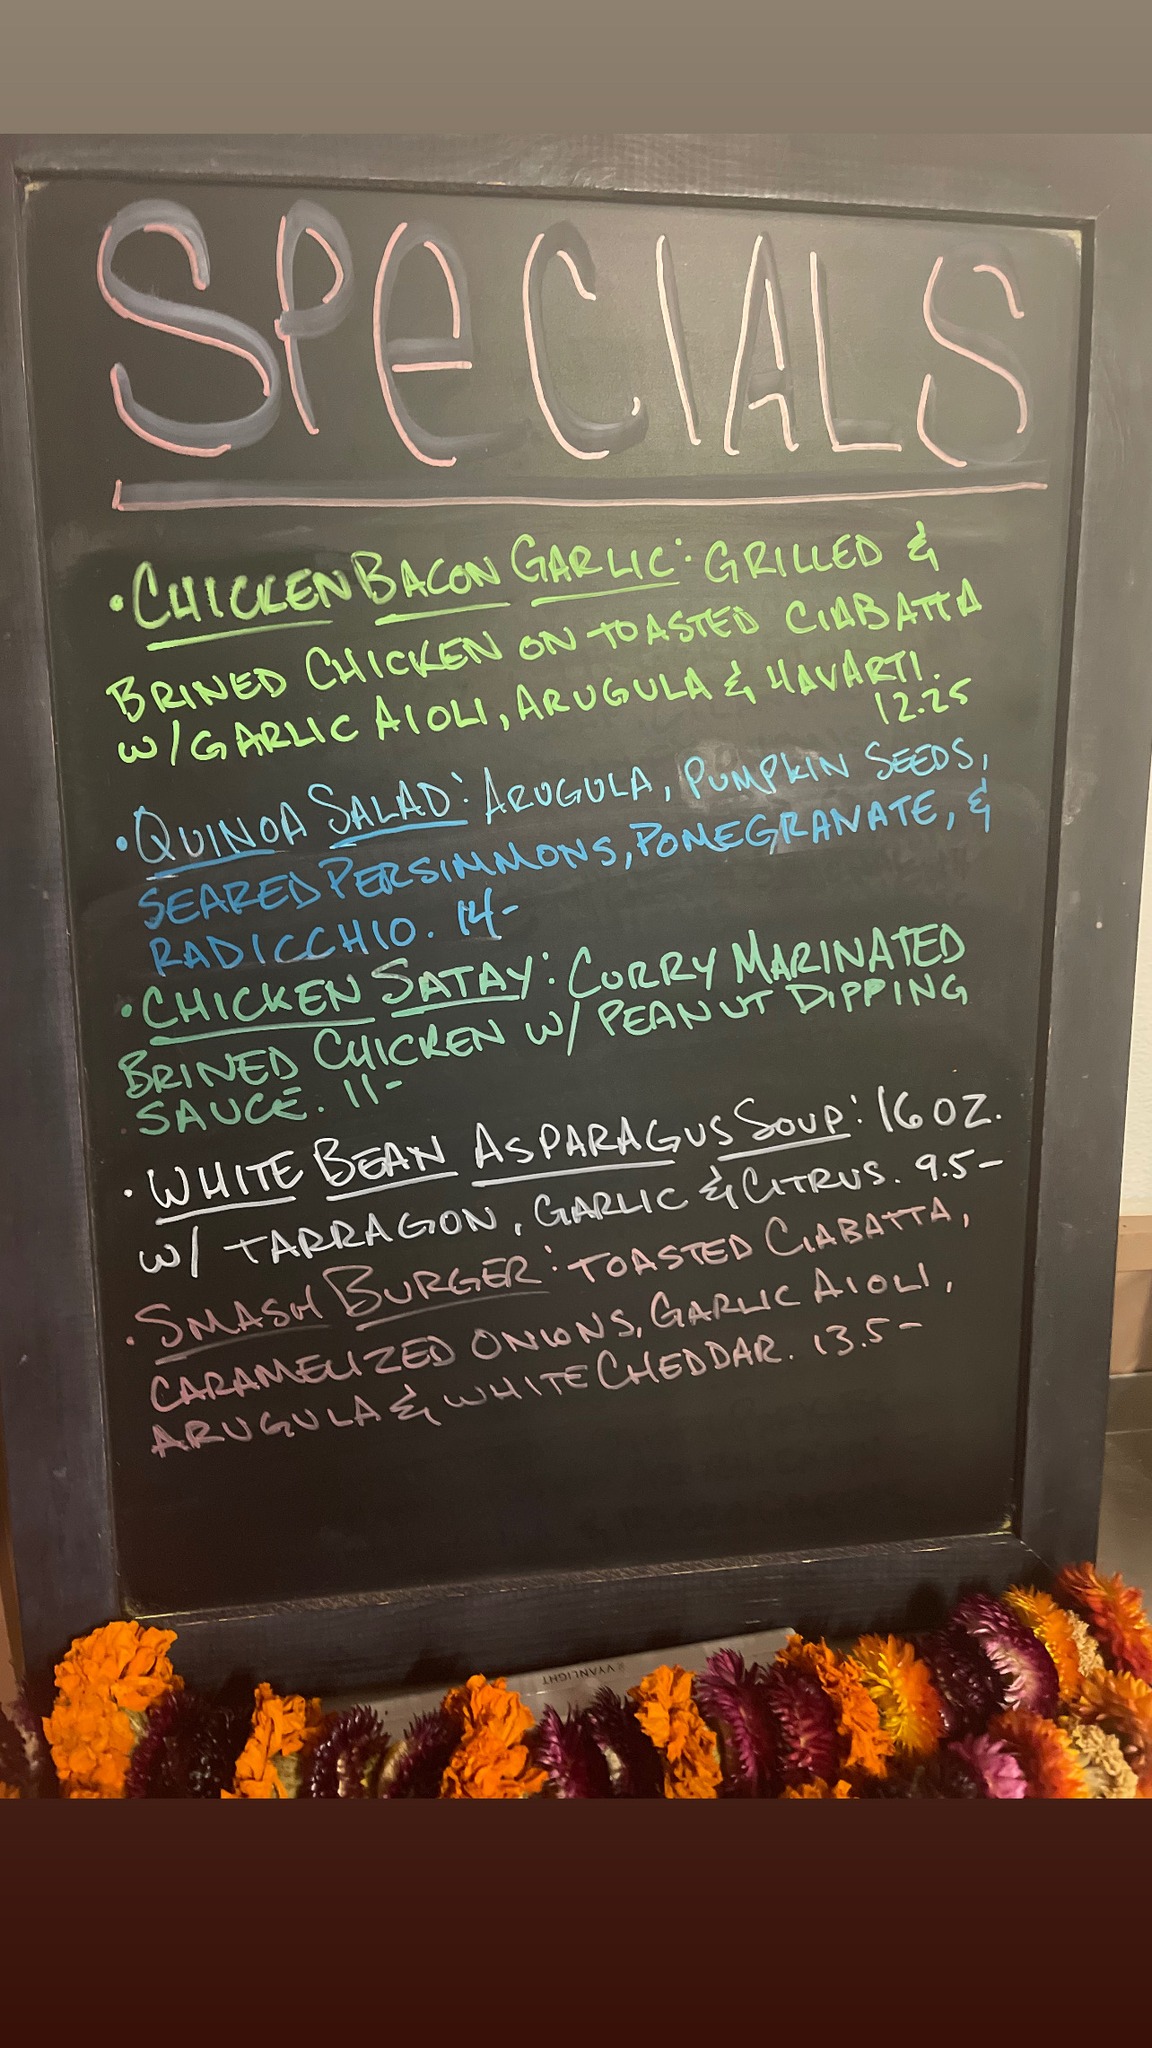 SPECIALS
• CHICKEN BACON GARLIC: GRILLED &
BRINED CHICKEN ON TOASTED CIABATTA
W/ GARLIC AIOLI, ARUGULA & HAVARTI.
12.25
• QUINOA SALAD: ARUGULA, PUMPKIN SEEDS,
SEARED PERSIMMONS, POMEGRANATE, &
RADICCHIO. 14-
• CHICKEN SATAY: CURRY MARINATED
BRINED CHICKEN W/ PEANUT DIPPING
SAUCE. 11-
• WHITE BEAN ASPARAGUS SOUP: 16 OZ.
W/ TARRAGON, GARLIC & CITRUS. 9.5-
• SMASH BURGER: TOASTED CIABATTA,
CARAMELIZED ONIONS, GARLIC AIOLI,
ARUGULA & WHITE CHEDDAR. 13.5-
VYANLIGHT